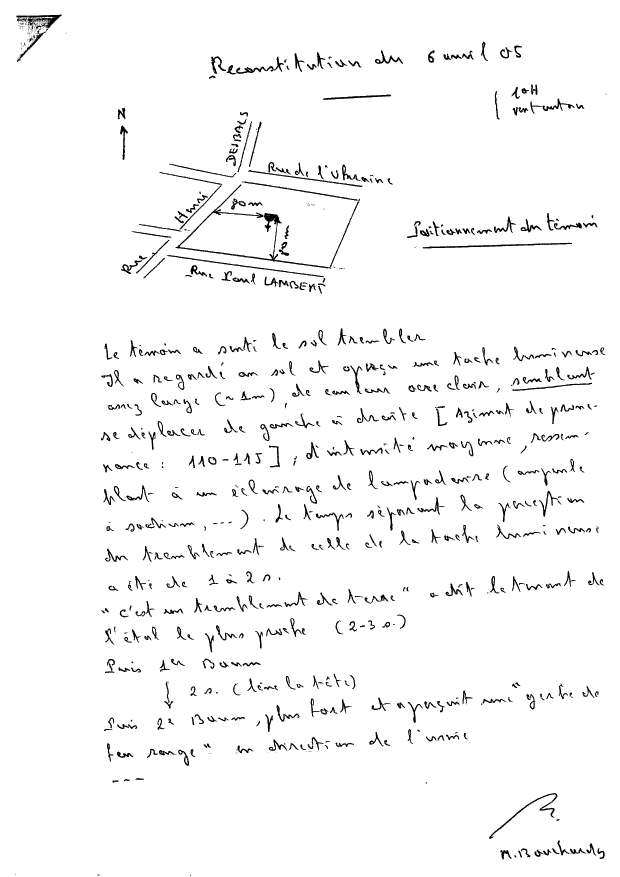 Reconstitution du 6 avril 05
10H
vent autan
N
DESBALS
Henri
Rue
Rue de l'Ukraine
20m
Rue Paul LAMBERT
Positionnement du témoin
Le témoin a senti le sol trembler
Il a regardé au sol et aperçu une tache lumineuse
assez large (~1m), de couleur ocre clair, semblant
se déplacer de gauche à droite [Azimut de prove-
nance : 110-115], d'intensité moyenne, ressem-
blant à un éclairage de lampadaire (ampoule
à sodium, ---). Le temps séparant la perception
du tremblement de celle de la tache lumineuse
a été de 1 à 2 s.
"c'est un tremblement de terre" a dit le tenant de
l'étal le plus proche (2-3 s.)
Puis 1er Boum
2 s. (lève la tête)
Puis 2e Boum, plus fort et aperçoit une "gerbe de
feu rouge" en direction de l'usine
---